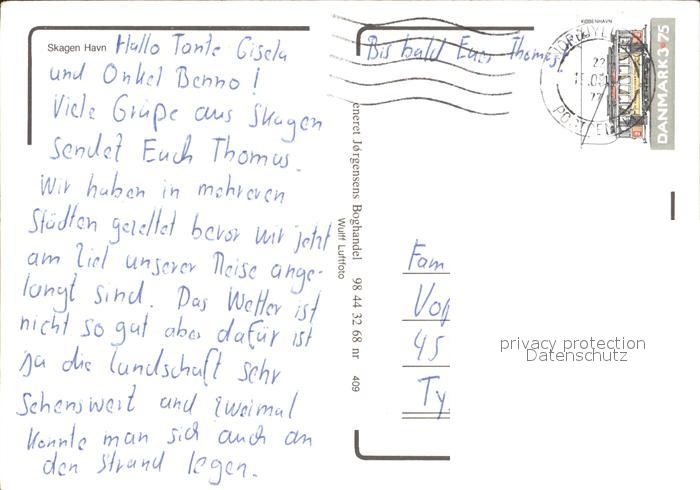 Skagen Havn Hallo Tante Gisela
und Onkel Benno!
Viele Grüße aus Skagen
sendet Euch Thomas.
Wir haben in mehreren
Städten gezeltet bevor wir jetzt
am Ziel unserer Reise ange-
langt sind. Das Wetter ist
nicht so gut aber dafür ist
ja die Landschaft sehr
Sehenswert und zweimal
konnte man sich auch an
den Strand legen.
Bis bald Euer Thomas!
eneret Jørgensens Boghandel 98 44 32 68 nr 409
Wulff Luftfoto
KØBENHAVN
DANMARK 3.75
Fam
45
Ty
privacy protection
Datenschutz